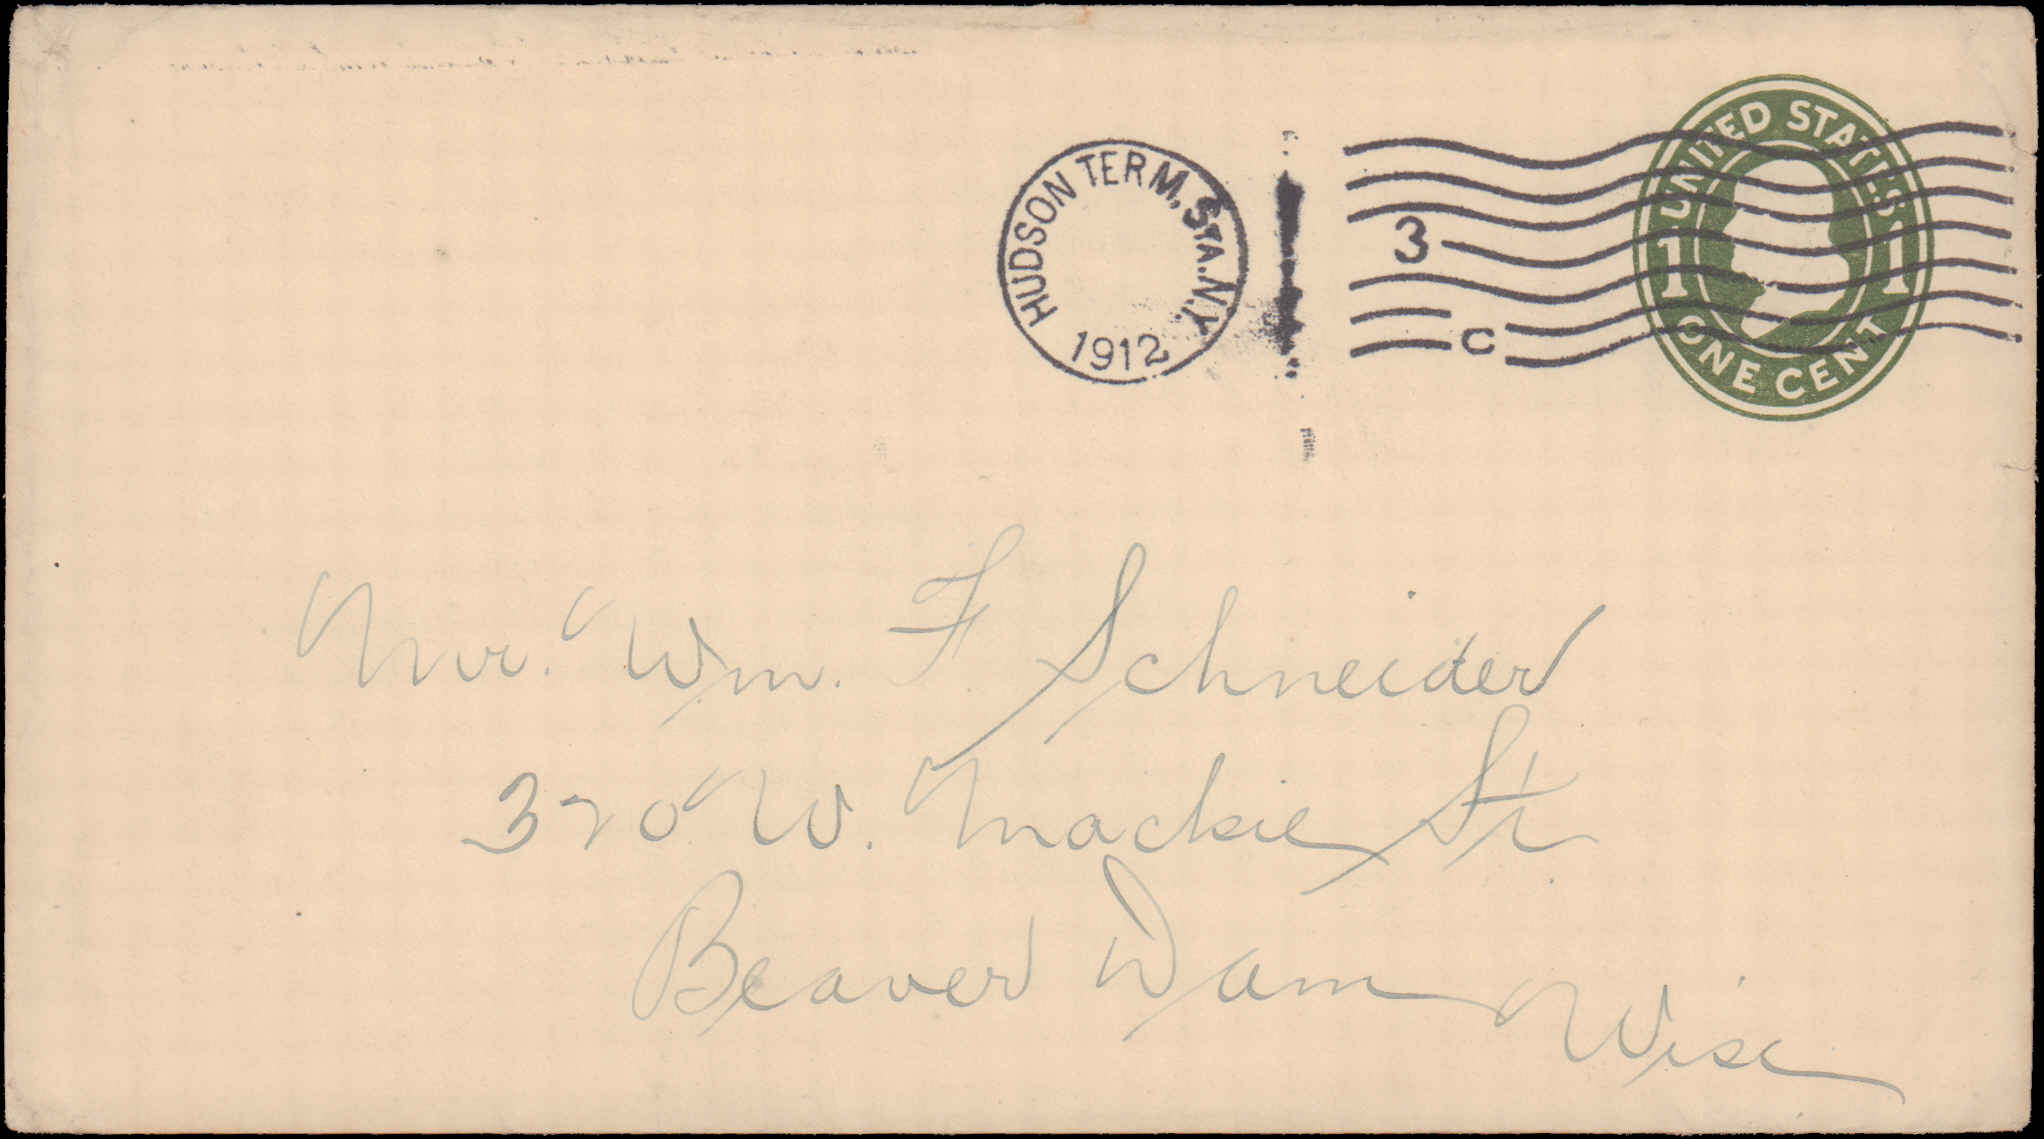 HUDSON TERM. STA. N.Y.
1912
3
C
UNITED STATES
1 1
ONE CENT
Mr. Wm. F. Schneider
320 W. Mackie St
Beaver Dam
Wisc